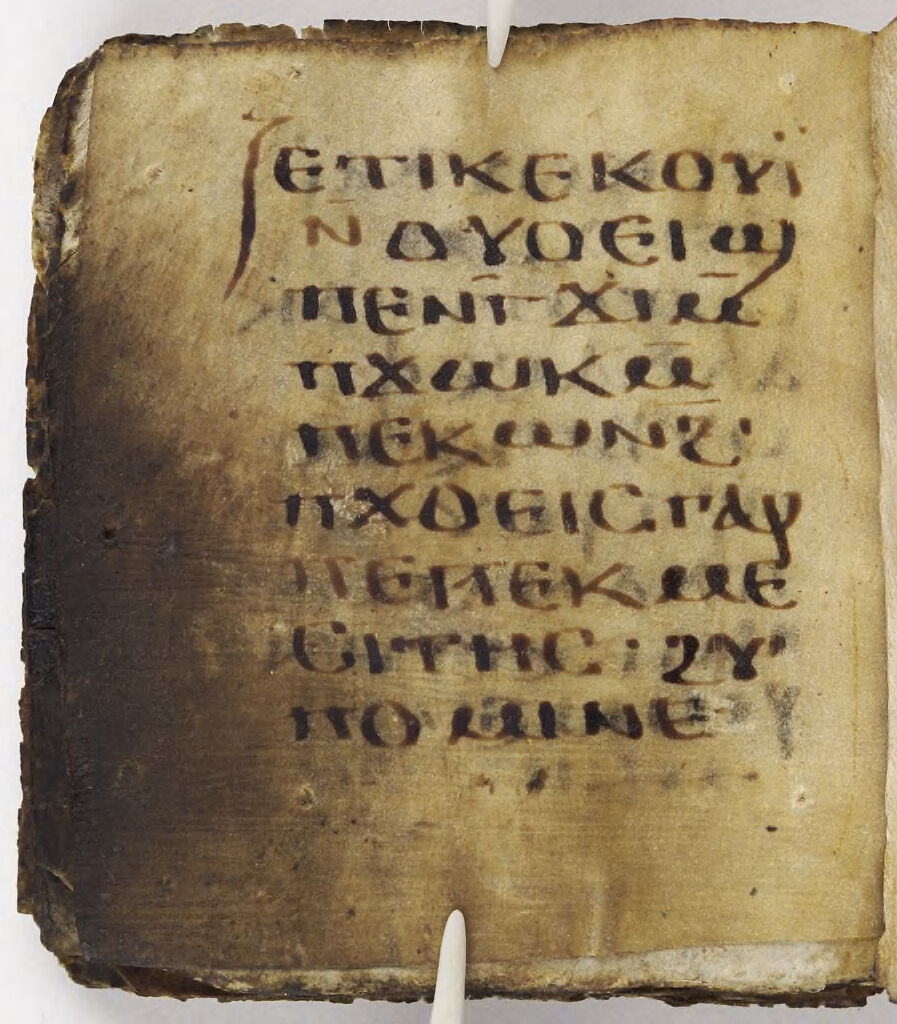 ⲉⲧⲓⲕⲉⲕⲟⲩⲓ̈
ⲛ̄ⲟⲩⲟⲉⲓϣ
ⲡⲉⲛⲧ̄ϫⲓⲙ̄
ⲡϫⲱⲕⲙ̄
ⲡⲉⲕⲱⲛϩ̄·
ⲡϫⲟⲉⲓⲥⲅⲁⲣ
ⲡⲉⲡⲉⲕⲙⲉ
ⲥⲓⲧⲏⲥ· ϩⲩ
ⲡⲟⲙⲓⲛⲉ